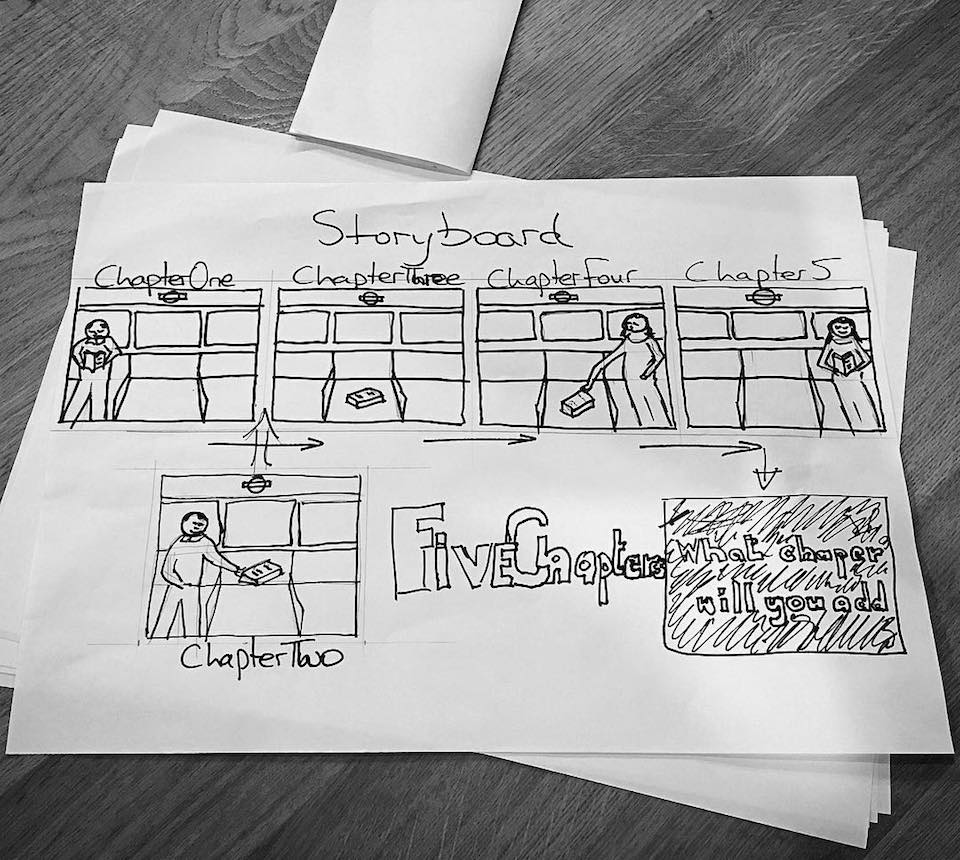 Storyboard
Chapter One
Chapter Three
Chapter Four
Chapter 5
Chapter Two
Five Chapters
What chaper
will you add